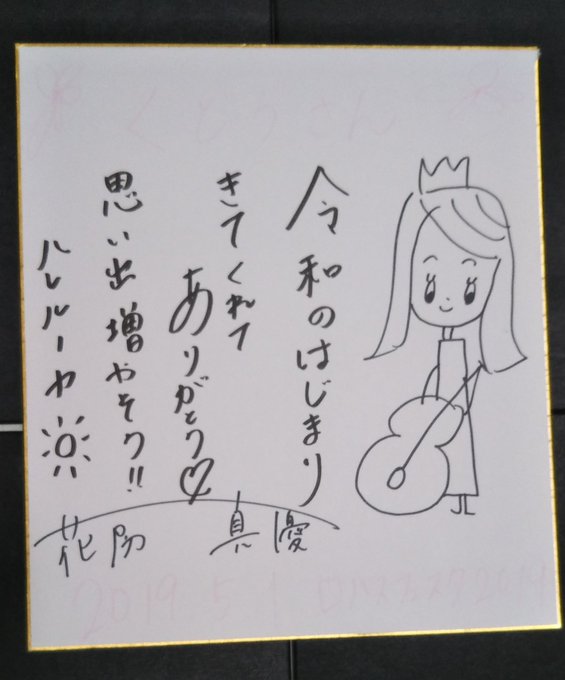 くどうさん
令和のはじまり
きてくれて
ありがとう♡
思い出増やそう!!
ハレルーヤ
花陽 真優
2019 5 1